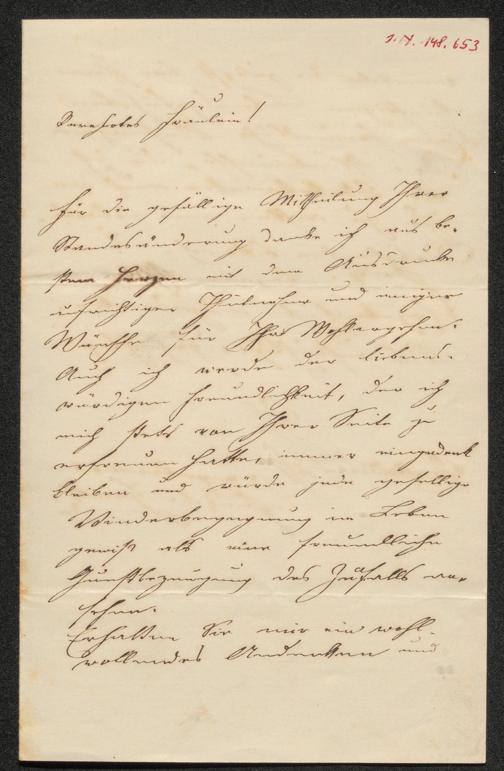 I.N. 148.653
Verehrtes Fräulein!
Für die gefällige Mittheilung Ihrer
Standesänderung danke ich aus be-
stem Herzen mit dem Ausdrucke
aufrichtiger Theilnahme und inniger
Wünsche für Ihr Wohlergehen.
Auch ich werde der liebens-
würdigen Freundlichkeit, der ich
mich stets von Ihrer Seite zu
erfreuen hatte, immer eingedenk
bleiben und würde jede gefällige
Wiederbegegnung im Leben
gewiß als eine freundliche
Gunstbezeugung des Zufalls an-
sehen.
Erhalten Sie mir ein wohl-
wollendes Andenken und